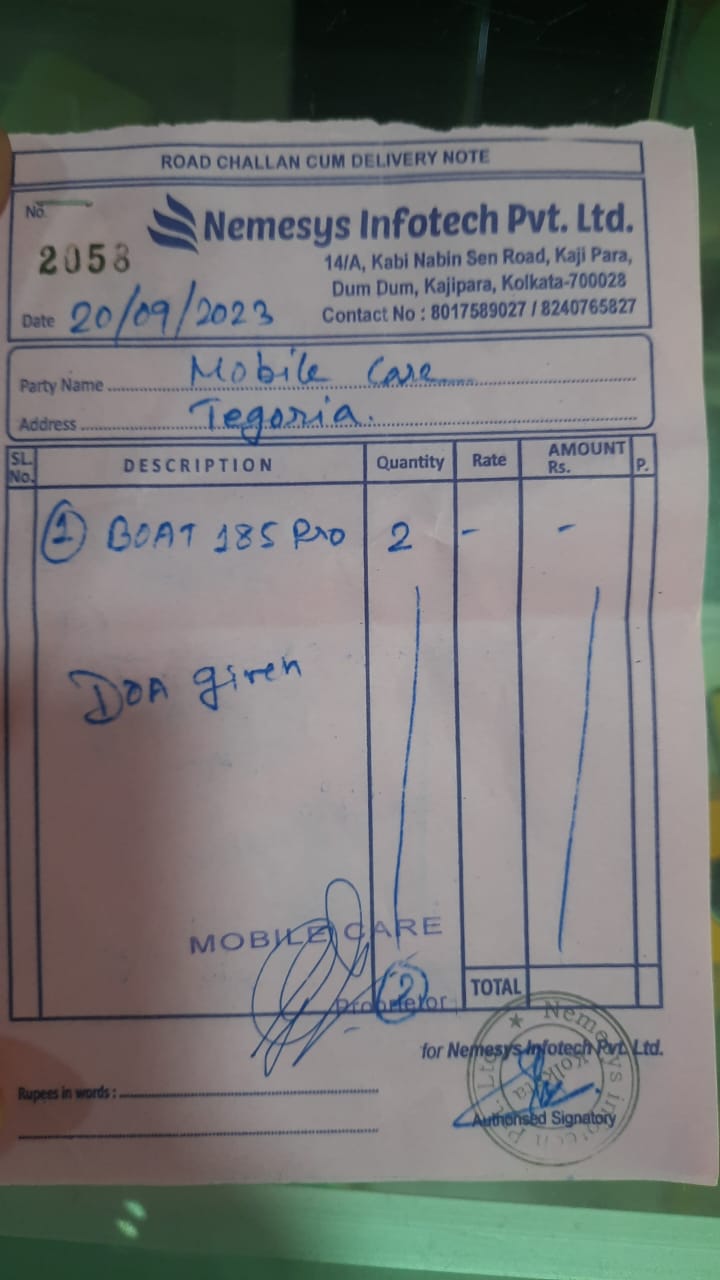 ROAD CHALLAN CUM DELIVERY NOTE
No.
2058
Nemesys Infotech Pvt. Ltd.
14/A, Kabi Nabin Sen Road, Kaji Para,
Dum Dum, Kajipara, Kolkata-700028
Contact No : 8017589027 / 8240765827
Date 20/09/2023
Party Name Mobile Care
Address Tegoria.
SL. No. DESCRIPTION Quantity Rate AMOUNT Rs. P.
1 BOAT 185 Pro 2 - -
DOA given
MOBILE CARE
Proprietor
2
TOTAL
for Nemesys Infotech Pvt. Ltd.
Nemesys Infotech P Ltd
Kolkata
Rupees in words :
Authorised Signatory